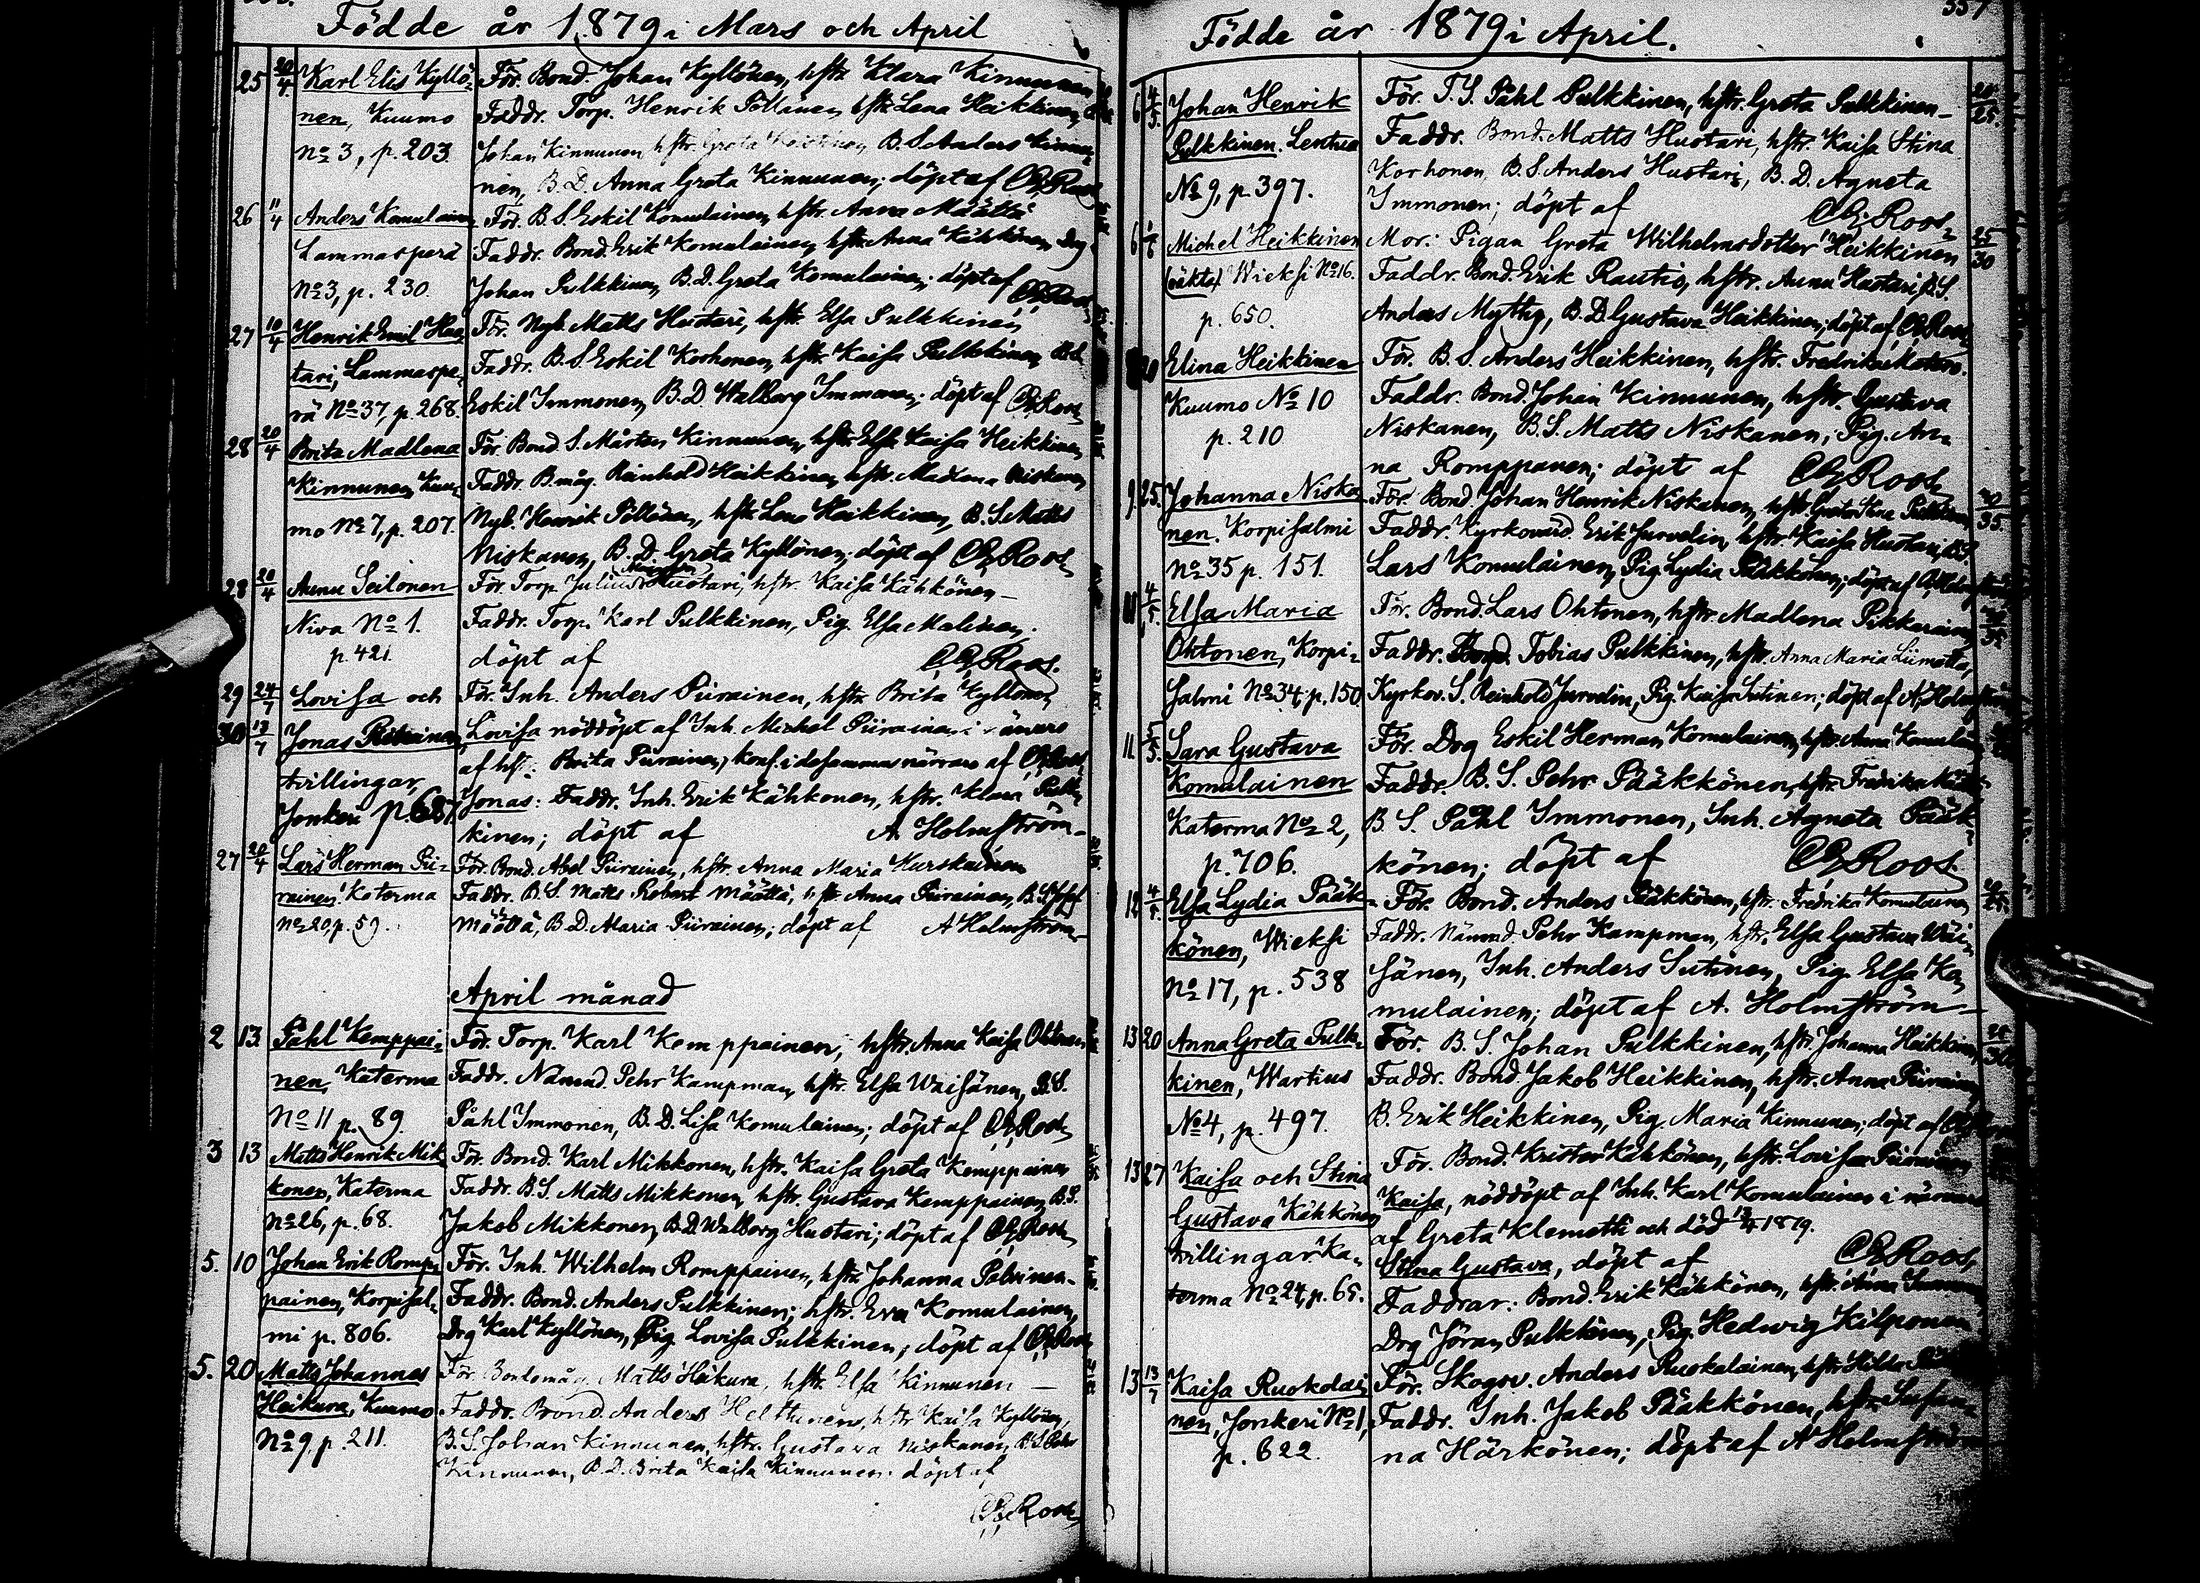 Födde år 1879 i Mars och April
25 20/4 Karl Elis Kyllö- För. Bond. Johan Kyllönen, hstr. Klara Kinnunen
nen, Kuumo Faddr. Torp. Henrik Pöllänen, hstr. Lena Heikkinen,
No 3, p. 203. Johan Kinnunen, hstr. Greta B.S. Anders Kinnu-
nen, B.D. Anna Greta Kinnunen; döpt af Roos
26 11/4 Anders Komulainen För. B.S. Eskil Komulainen, hstr. Anna Määttä
Lammasperä Faddr. Bond. Erik Komulainen, hstr. Anna Kähkönen, Drg
No 3, p. 230. Johan Pulkkinen, B.D. Greta Komulainen; döpt af Roos
27 10/4 Henrik Emil Hus- För. Nyb. Matts Hustari, hstr. Elsa Pulkkinen
tari, Lammaspe- Faddr. B.S. Eskil Korhonen, hstr. Kaisa Pulkkinen, B.S.
rä No 37, p. 268. Eskil Immonen, B.D. Walborg Immonen; döpt af Roos
28 20/4 Brita Madlena För. Bond. S. Mårten Kinnunen, hstr. Elsa Kaisa Heikkinen
Kinnunen, Kuu- Faddr. Bmåg. Reinhold Heikkinen, hstr. Madlena Niskanen
mo No 7, p. 207. Nyb. Henrik Pöllänen, hstr. Lena Heikkinen, B.S. Matts
Niskanen, B.D. Greta Kyllönen; döpt af Roos
28 20/4 Seilonen För. Torp. Julius Hustari, hstr. Kaisa Kähkönen
Niva No 1. Faddr. Torp. Karl Pulkkinen, Pig. Elsa Malinen;
p. 421. döpt af Roos.
29 24/7 Lovisa och För. Inh. Anders Piirainen, hstr. Brita Kyllönen
30 13/7 Jonas Piirainen Lovisa nöddöpt af Inh. Michel Piirainen i
tvillingar, af Brita Piirainen, konf. i desammas närvaro af Roos
Jonkeri p. 687. Jonas: Faddr. Inh. Erik Kähkonen, hstr. Klara Pulk-
kinen; döpt af A Holmström
27 20/4 Lars Herman Pii- För. Bond. Abel Piirainen, hstr. Anna Maria Kurskainen
rainen, Katerma Faddr. B.S. Matts Robert Määttä, hstr. Anna Piirainen, B.S. Josef
No 20, p. 59. Määttä, B.D. Maria Piirainen; döpt af A Holmström
April månad
2 13 Påhl Kemppai- För. Torp. Karl Kemppainen, hstr. Anna Kaisa
nen, Katerma Faddr. Nämnd. Pehr Kampman, hstr. Elsa Waisänen, B.S.
No 11 p. 89. Påhl Immonen, B.D. Lisa Komulainen; döpt af Roos
3 13 Matts Henrik Mik- För. Bond. Karl Mikkonen, hstr. Kaisa Greta Kemppainen
konen, Katerma Faddr. B.S. Matts Mikkonen, hstr. Gustava Kemppainen, B.S.
No 26, p. 68. Jakob Mikkonen, B.D. Walborg Hustari; döpt af Roos
5. 10 Johan Erik Romp- För. Inh. Wilhelm Romppainen, hstr. Johanna Palvinen
painen, Korpisal- Faddr. Bond. Anders Pulkkinen; hstr. Eva Komulainen,
mi p. 806. Drg Karl Kyllönen, Pig. Lovisa Pulkkinen; döpt af Roos
5. 20 Matts Johannes För. Bondemåg. Matts Heikura, hstr. Elsa Kinnunen
Heikura, Kuumo Faddr. Bond. Anders Helttunen, hstr. Kaisa Kyllönen,
No 9, p. 211. B.S. Johan Kinnunen, hstr. Gustava Niskanen, B.S. Pehr
Kinnunen, B.D. Brita Kaisa Kinnunen; döpt af
Roos
Födde år 1879 i April.
6 4/5 Johan Henrik För. T.S. Påhl Pulkkinen, hstr. Greta Pulkkinen
Pulkkinen. Lentua Faddr. Bond. Matts Hustari, hstr. Kaisa Stina
No 9, p. 397. Korhonen, B.S. Anders Hustari, B.D. Agneta
Immonen; döpt af Roos
6 Michel Heikkinen Mor: Pigan Greta Wilhelmsdotter Heikkinen 25/30
(oäkta) Wieksi No 16. Faddr. Bond. Erik Rautio, hstr. Anna Hustari, B.S.
p. 650. Anders Mytty, B.D. Gustava Heikkinen; döpt af Roos
20 Elina Heikkinen För. B.S. Anders Heikkinen, hstr. Fredrika
Kuumo No 10 Faddr. Bond. Johan Kinnunen, hstr. Gustava
p. 210 Niskanen, B.S. Matts Niskanen, Pig. An-
na Romppanen; döpt af Roos
9. 25. Johanna Niska- För. Bond. Johan Henrik Niskanen, hstr. Greta Stina Pulkkinen
nen. Korpisalmi Faddr. Kyrkovärd. Erik Jurvelin, hstr. Kaisa Hustari, B.S.
No 35 p. 151. Lars Komulainen, Pig. Lydia Pääkkönen; döpt af A Holmström
4/5 Elsa Maria För. Bond. Lars Ohtonen, hstr. Madlena Pikkarainen
Ohtonen, Korpi- Faddr. Bond. Tobias Pulkkinen, hstr. Anna Maria Liimatta,
salmi No 34, p. 150 Kyrkov. S. Reinhold Jurvelin, Pig. Kaisa Sutinen; döpt af A. Holmström
11 5/5 Sara Gustava För. Drg Eskil Herman Komulainen, hstr. Anna Komulainen
Komulainen Faddr. B.S. Pehr Pääkkönen, hstr. Fredrika
Katerma No 2, B.S. Påhl Immonen, Inh. Agneta Pääk-
p. 706. könen; döpt af Roos.
12 4/5 Elsa Lydia Pääk- För. Bond. Anders Pääkkönen, hstr. Fredrika Komulainen
könen, Wieksi Faddr. Nämnd. Pehr Kampman, hstr. Elsa Gustava Wäi-
No 17, p. 538 sänen, Inh. Anders Sutinen, Pig. Elsa Ko-
mulainen; döpt af A. Holmström
13 20 Anna Greta Pulk- För. B.S. Johan Pulkkinen, hstr. Johanna Heikkinen 25/30
kinen, Wartius Faddr. Bond. Jakob Heikkinen, hstr. Anna Piirainen,
No 4, p. 497. B. Erik Heikkinen, Pig. Maria Kinnunen; döpt af
13 27 Kaisa och Stina För. Bond. Krister Kähkönen, hstr. Lovisa Piirainen
Gustava Kähkönen Kaisa, nöddöpt af Inh. Karl Komulainen i närvaro
tvillingar. Ka- af Greta Klemetti och död 13/4 1879.
terma No 24, p. 65. Stina Gustava, döpt af Roos,
Faddrar: Bond. Erik Kähkönen, hstr. Anna Immonen
Drg Jöran Pulkkinen, Pig. Hedwig Kilponen
13 13/7 Kaisa Ruokolai- För. Skogsv. Anders Ruokolainen, hstr. Hilda
nen, Jonkeri No 1, Faddr. Inh. Jakob Pääkkönen, hstr. Susan-
p. 622. na Härkönen; döpt af A Holmström